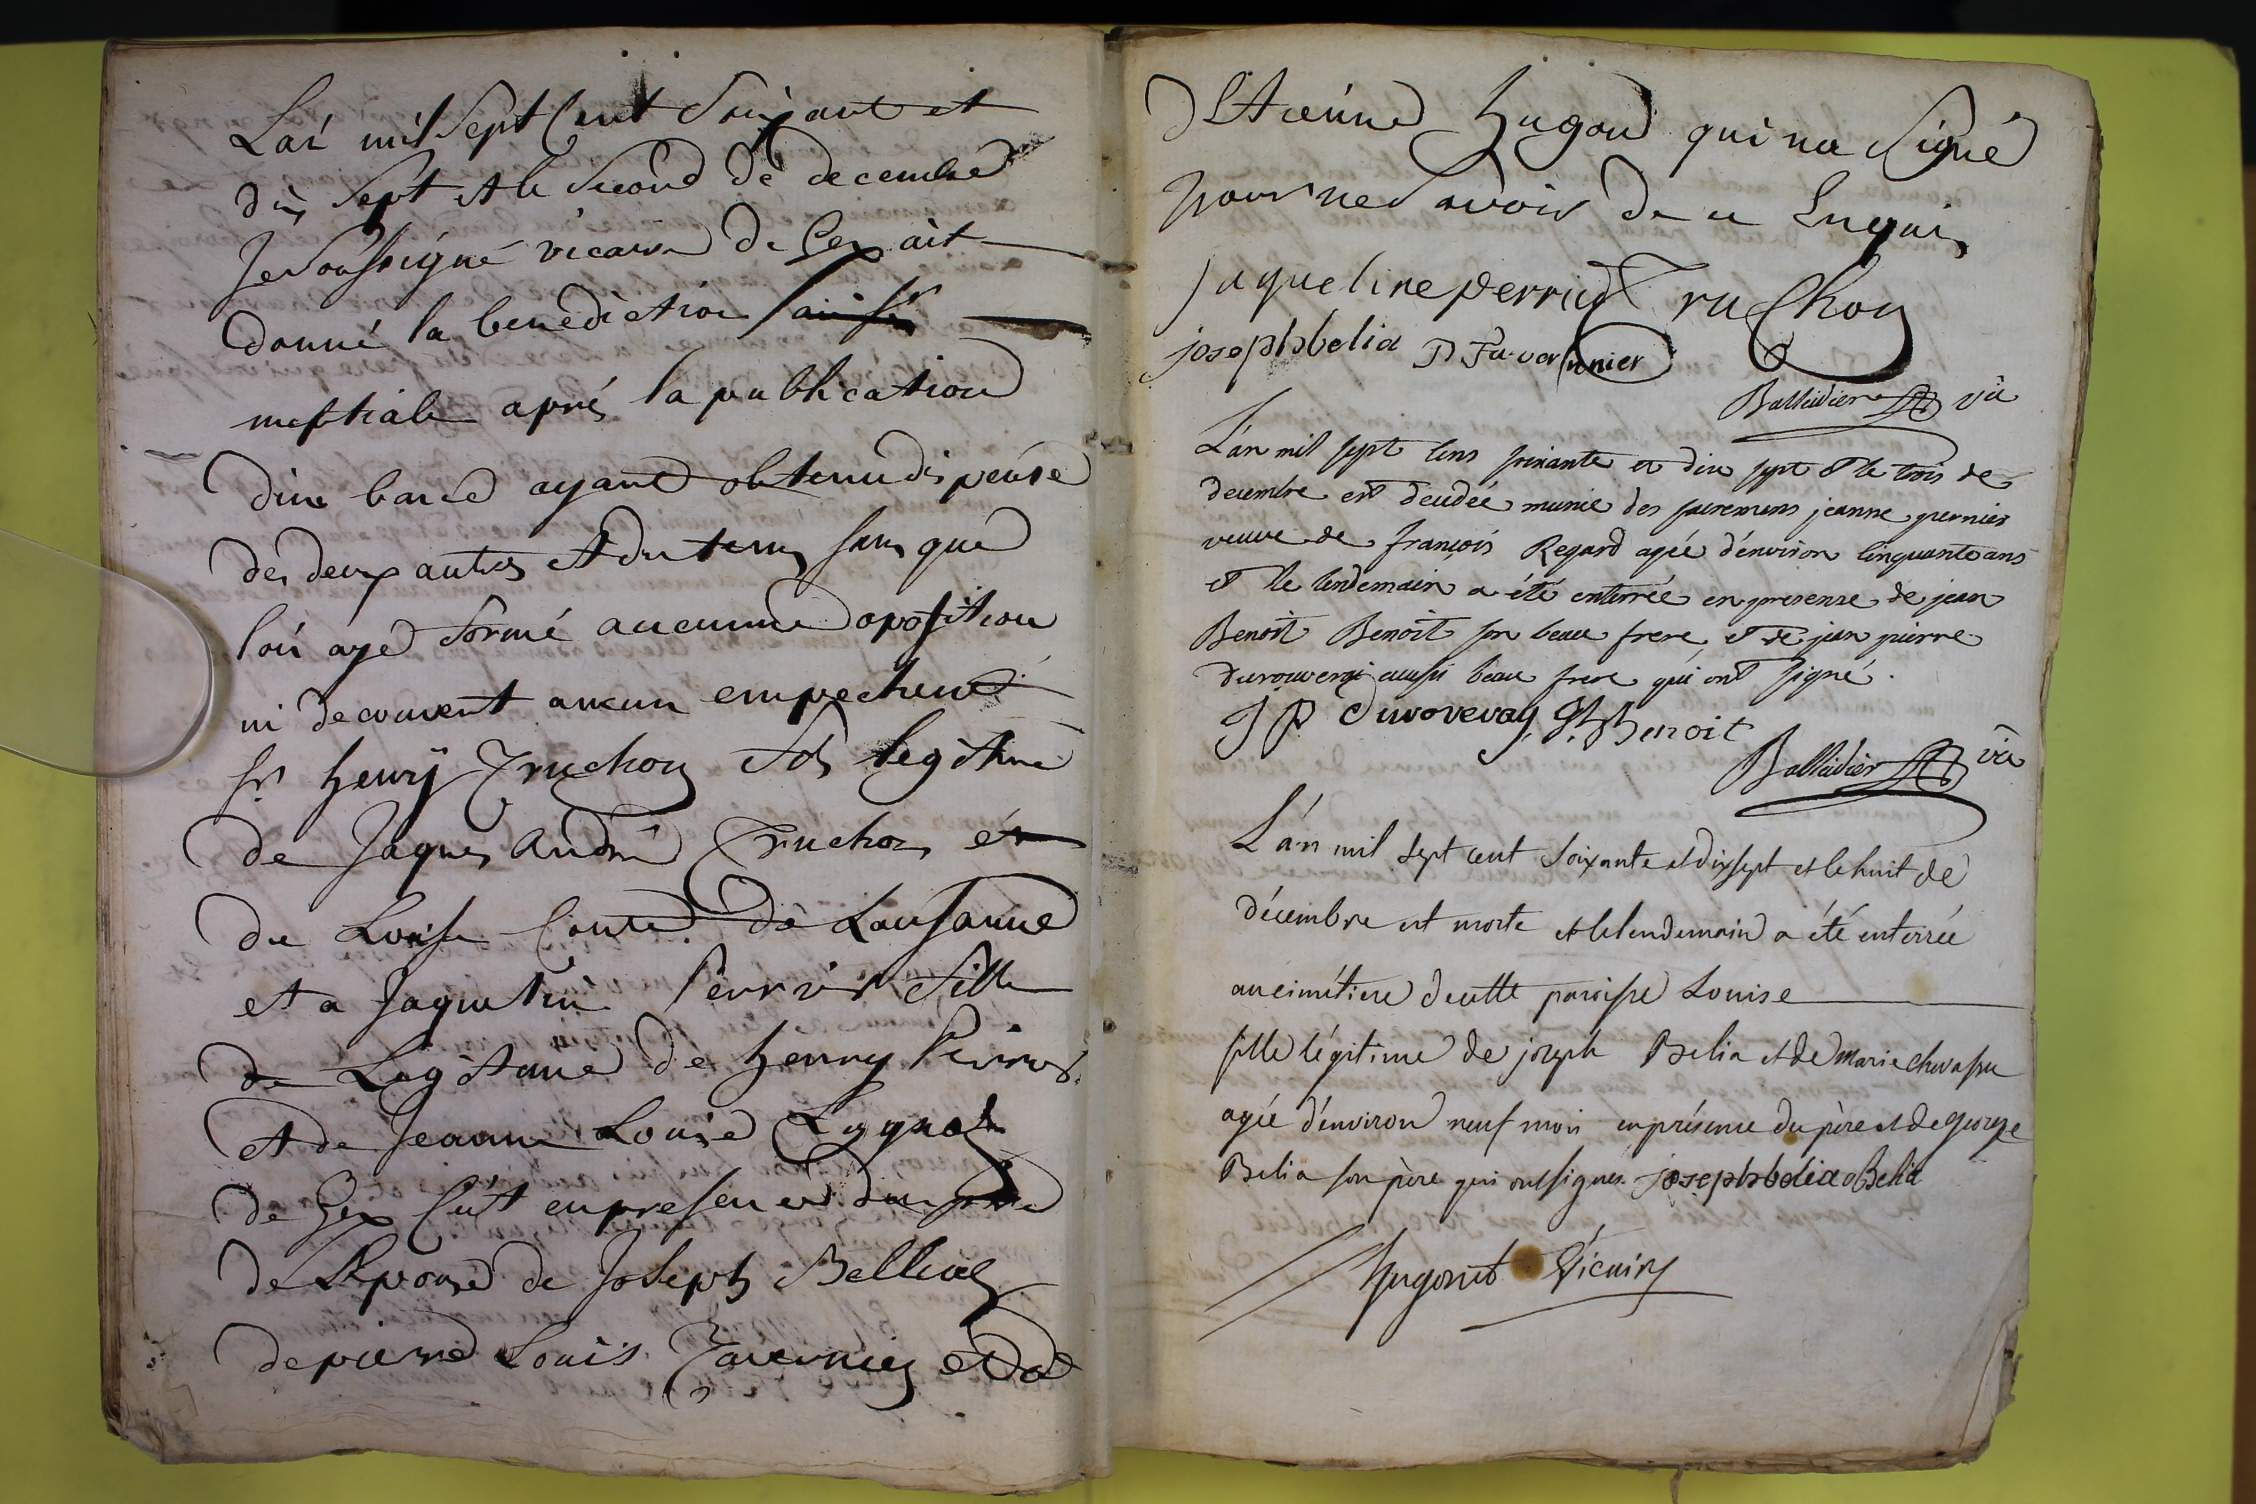 Lan mil Sept Cent Soixant et
dix Sept et le Second de decembre
Je Soussigné vicaire de Gex ait
donné la benediction
nuptiale aprés la publication
dun banc ayant obtenu dispense
des deux autres et du tems sans que
lon aye formé aucunne oposition
ni decouvert aucun empechement
Sr henrÿ Truchon fils legitime
de Jaques André Truchon et
de Louise Conte de Lausanne
et a Jaqueline Perrier fille
de Legitime de henry Perrier
et de Jeanne Louise
de Gex C'est en presence du pere
de Lepouse de Joseph Bellia
de pierre Louis Tavernier et de
dEtienne hugon qui na Signé
pour ne Savoir de ce Enquis
jaqueline perrier Truchon
joseph belia P Tavernier
Ballidier vic
L'an mil sept cens soixante et dix sept et le trois de
decembre est decedée munie des sacremens jeanne grenier
veuve de françois Regard agée d'environ cinquante ans
et le lendemain a été enterrée en presence de jean
Benoit Benoit son beau frere et de jean pierre
durouveray aussi beau frere qui ont signé.
J P durovevay Benoit
Ballidier vic
L'an mil sept cent soixante et dix sept et le huit de
décembre est morte et le lendemain a été enterrée
au cimétiere de cette paroisse Louise
fille légitime de joseph Belia et de Marie chevassu
agée d'environ neuf mois en présence du père et de george
Belia son père qui ont signés. joseph belia Belia
hugonet Vicaire